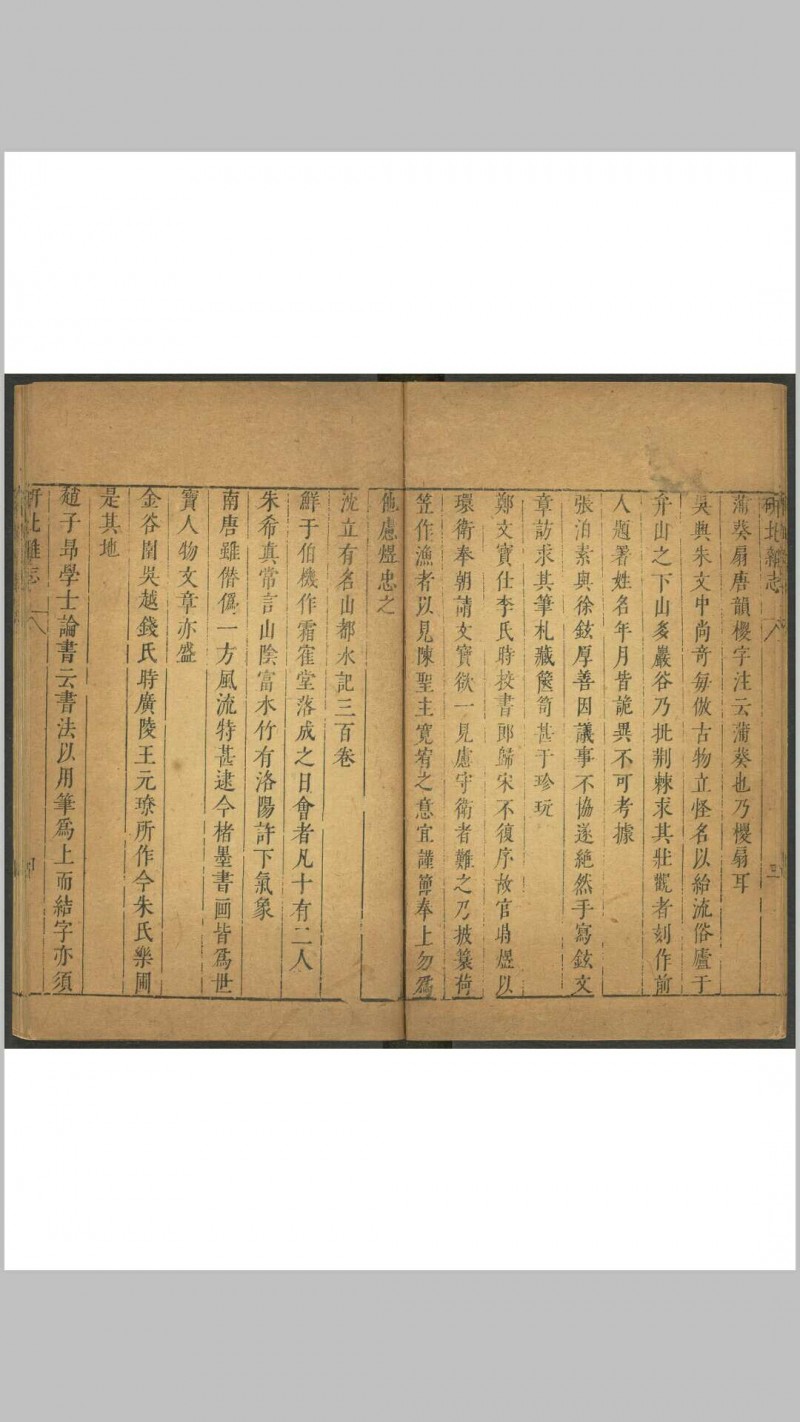 研北雜志 八 三
蒲葵扇唐韻椶字注云蒲葵也乃椶扇耳
吳興朱文中尚竒每倣古物立怪名以紿流俗廬于
弁山之下山多巖谷乃批荆棘求其壯觀者刻作前
人題署姓名年月皆詭異不可考據
張洎素與徐鉉厚善因議事不協遂絶然手寫鉉文
章訪求其筆札藏篋笥甚于珍玩
鄭文寶仕李氏時挍書郎歸宋不復序故官時煜以
環衛奉朝請文寶欲一見慮守衛者難之乃披蓑荷
笠作漁者以見陳聖主寛宥之意宜謹節奉上勿爲
他慮煜忠之
沈立有名山都水記三百卷
鮮于伯機作霜寉堂落成之日會者凡十有二人
朱希真常言山陰富水竹有洛陽許下氣象
南唐雖僭僞一方風流特甚逮今楮墨書画皆爲世
寶人物文章亦盛
金谷園吳越錢氏時廣陵王元璙所作今朱氏樂圃
是其地
趙子昂學士論書云書法以用筆爲上而結字亦須
研北雜志 八